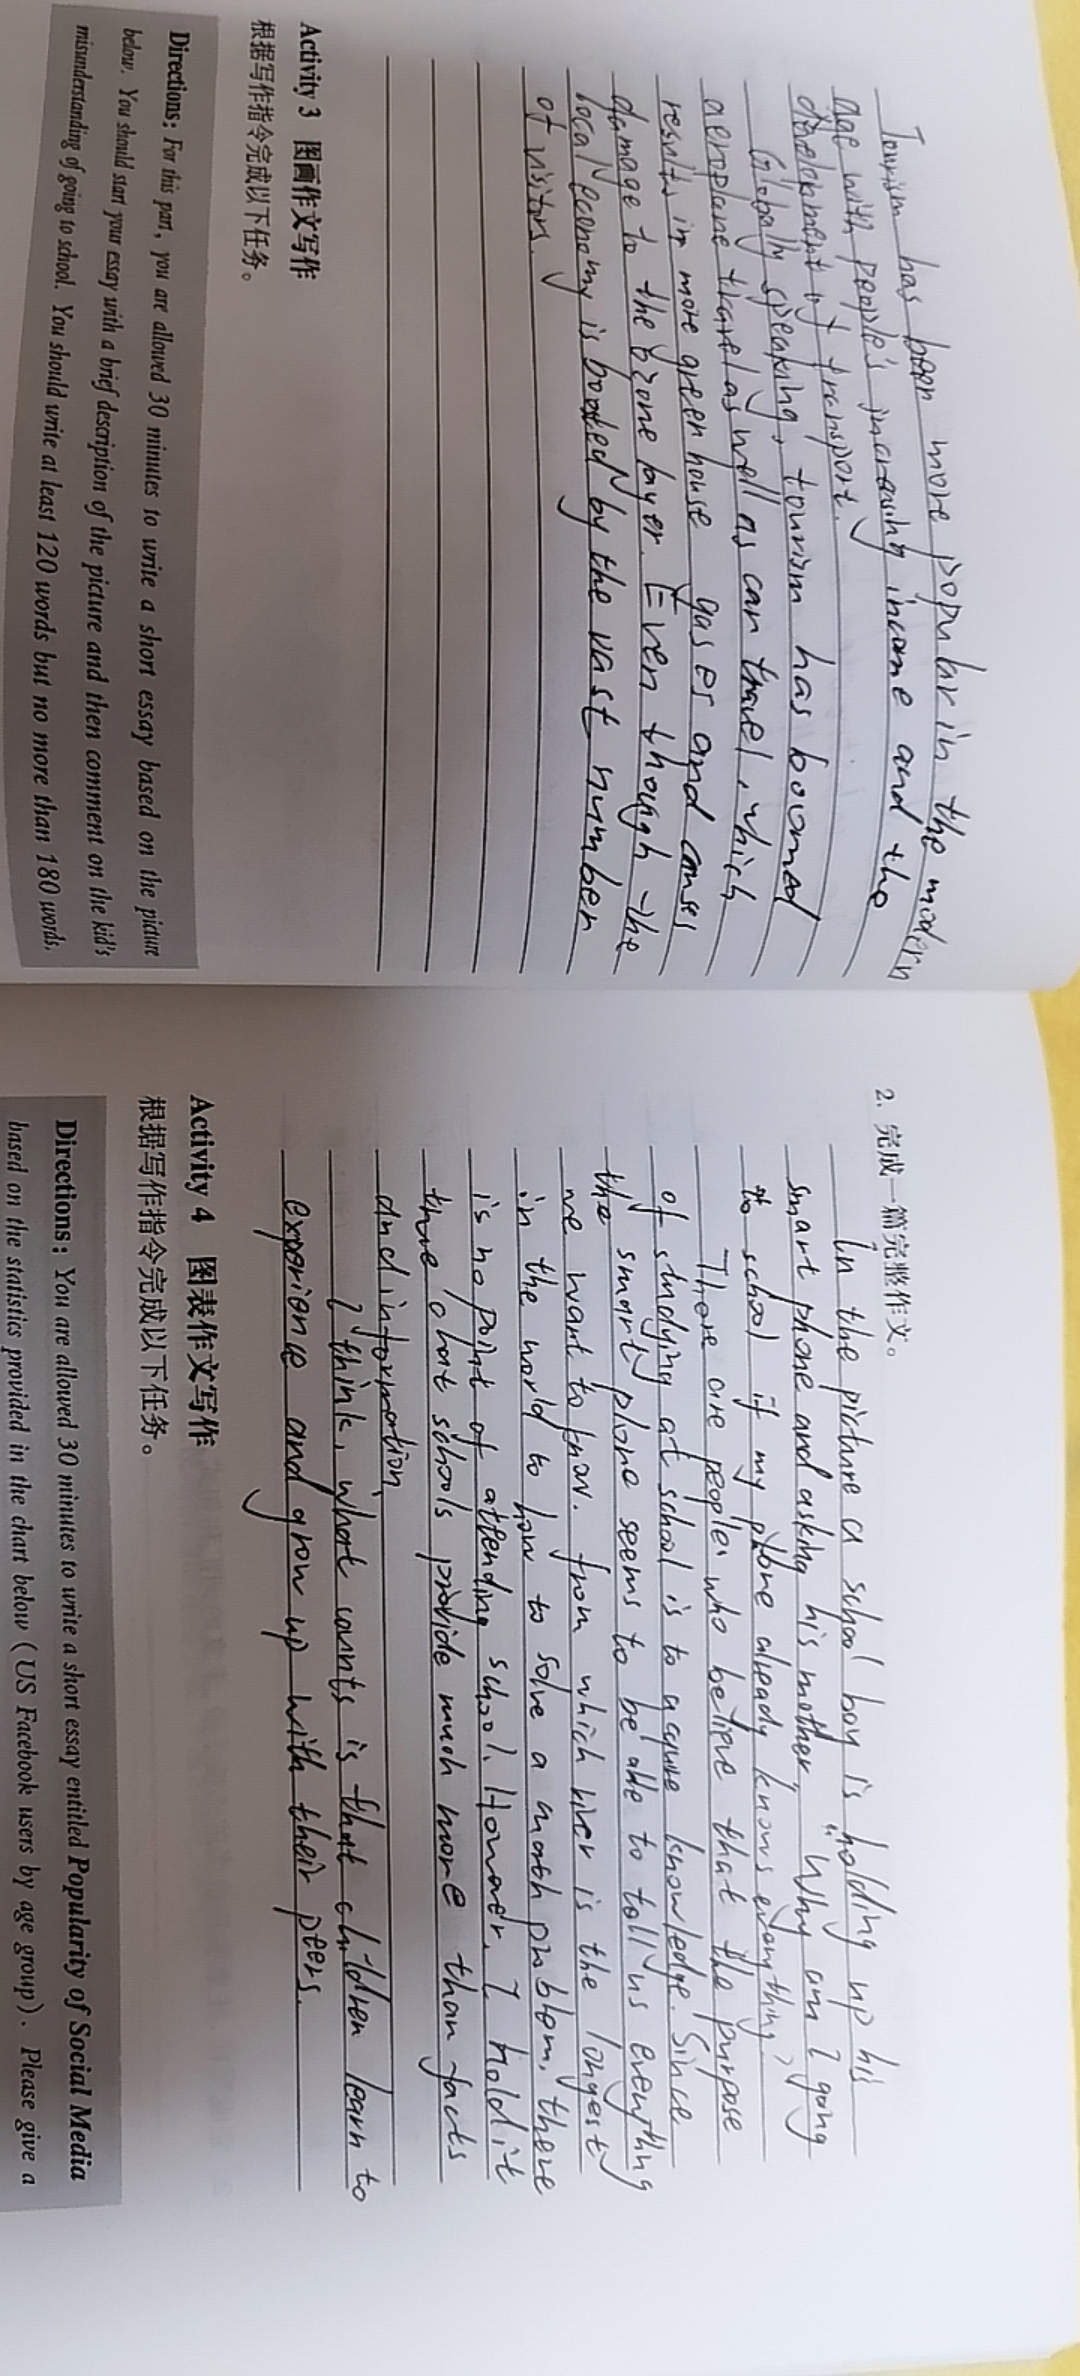 Tourism has been more popular in the modern
age with people's increasing income and the
development of transport.
Globally speaking, tourism has boomed
aeroplane travel as well as car travel, which
results in more green house gases and causes
damage to the ozone layer. Even though the
local economy is boosted by the vast number
of visitors.
Activity 3 图画作文写作
根据写作指令完成以下任务。
Directions: For this part, you are allowed 30 minutes to write a short essay based on the picture
below. You should start your essay with a brief description of the picture and then comment on the kid's
misunderstanding of going to school. You should write at least 120 words but no more than 180 words.
2. 完成一篇完整作文。
In the picture a school boy is holding up his
smart phone and asking his mother, "Why am I going
to school if my phone already knows everything?
There are people who believe that the purpose
of studying at school is to acquire knowledge. Since
the smart phone seems to be able to tell us everything
we want to know. from which river is the longest
in the world to how to solve a math problem, there
is no point of attending school. However, I hold it
true that schools provide much more than facts
and information.
I think, what counts is that children learn to
experience and grow up with their peers.
Activity 4 图表作文写作
根据写作指令完成以下任务。
Directions: You are allowed 30 minutes to write a short essay entitled Popularity of Social Media
based on the statistics provided in the chart below (US Facebook users by age group). Please give a